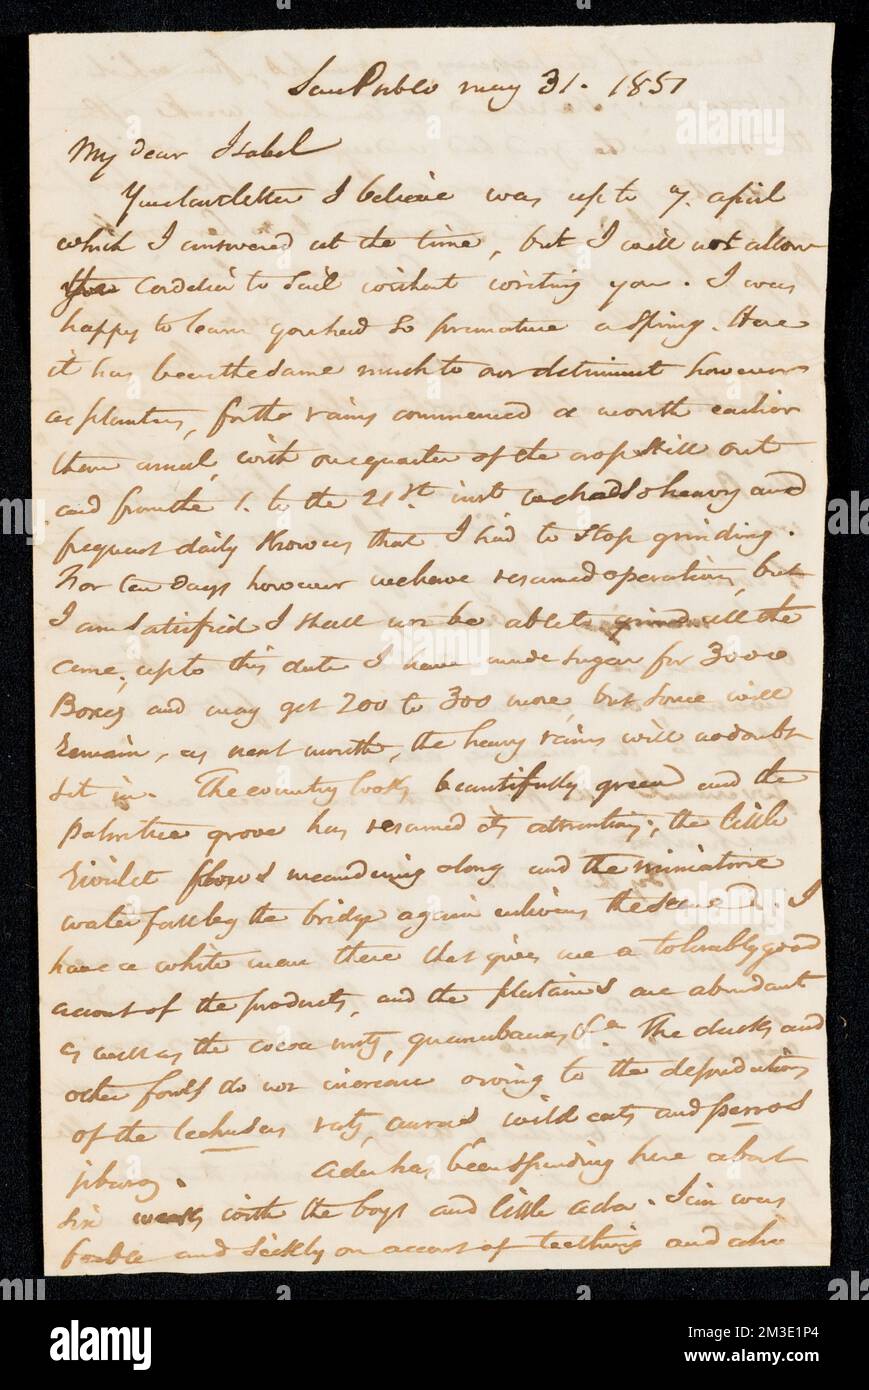 San Pablo may 31. 1851
My dear Isabel
Your last letter I believe was up to 7. april
which I answered at the time, but I will not allow
Cordelia to sail without writing you. I was
happy to learn you had so premature a spring. Here
it has been the same much to our detriment however
as planters, for the rains commenced a month earlier
than usual, with one quarter of the crop still out
and from the 1. to the 21st. inst we had so heavy and
frequent daily showers that I had to stop grinding.
For ten days however we have resumed operations, but
I am satisfied I shall not be able to grind all the
cane, up to this date I have made sugar for 3000
Boxes and may get 200 to 300 more, but some will
remain, as next month, the heavy rains will no doubt
set in. The country looks beautifully green and the
palmtree grove has resumed its attractions, the little
rivulet flows meandering along and the miniature
water fall by the bridge again enlivens the scene. I
have a white man there that gives me a tolerably good
account of the products, and the platains are abundant
as well as the cocoa nuts, guanabanas &a The ducks and
other fowls do not increase owing to the depredations
of the lechusas rats, auras wild cats and perros
jibaros. Ada has been spending here about
six weeks with the boys and little Ada. Jim was
feeble and sickly on account of teething and
alamy
alamy
Image ID: 2M3E1P4
www.alamy.com